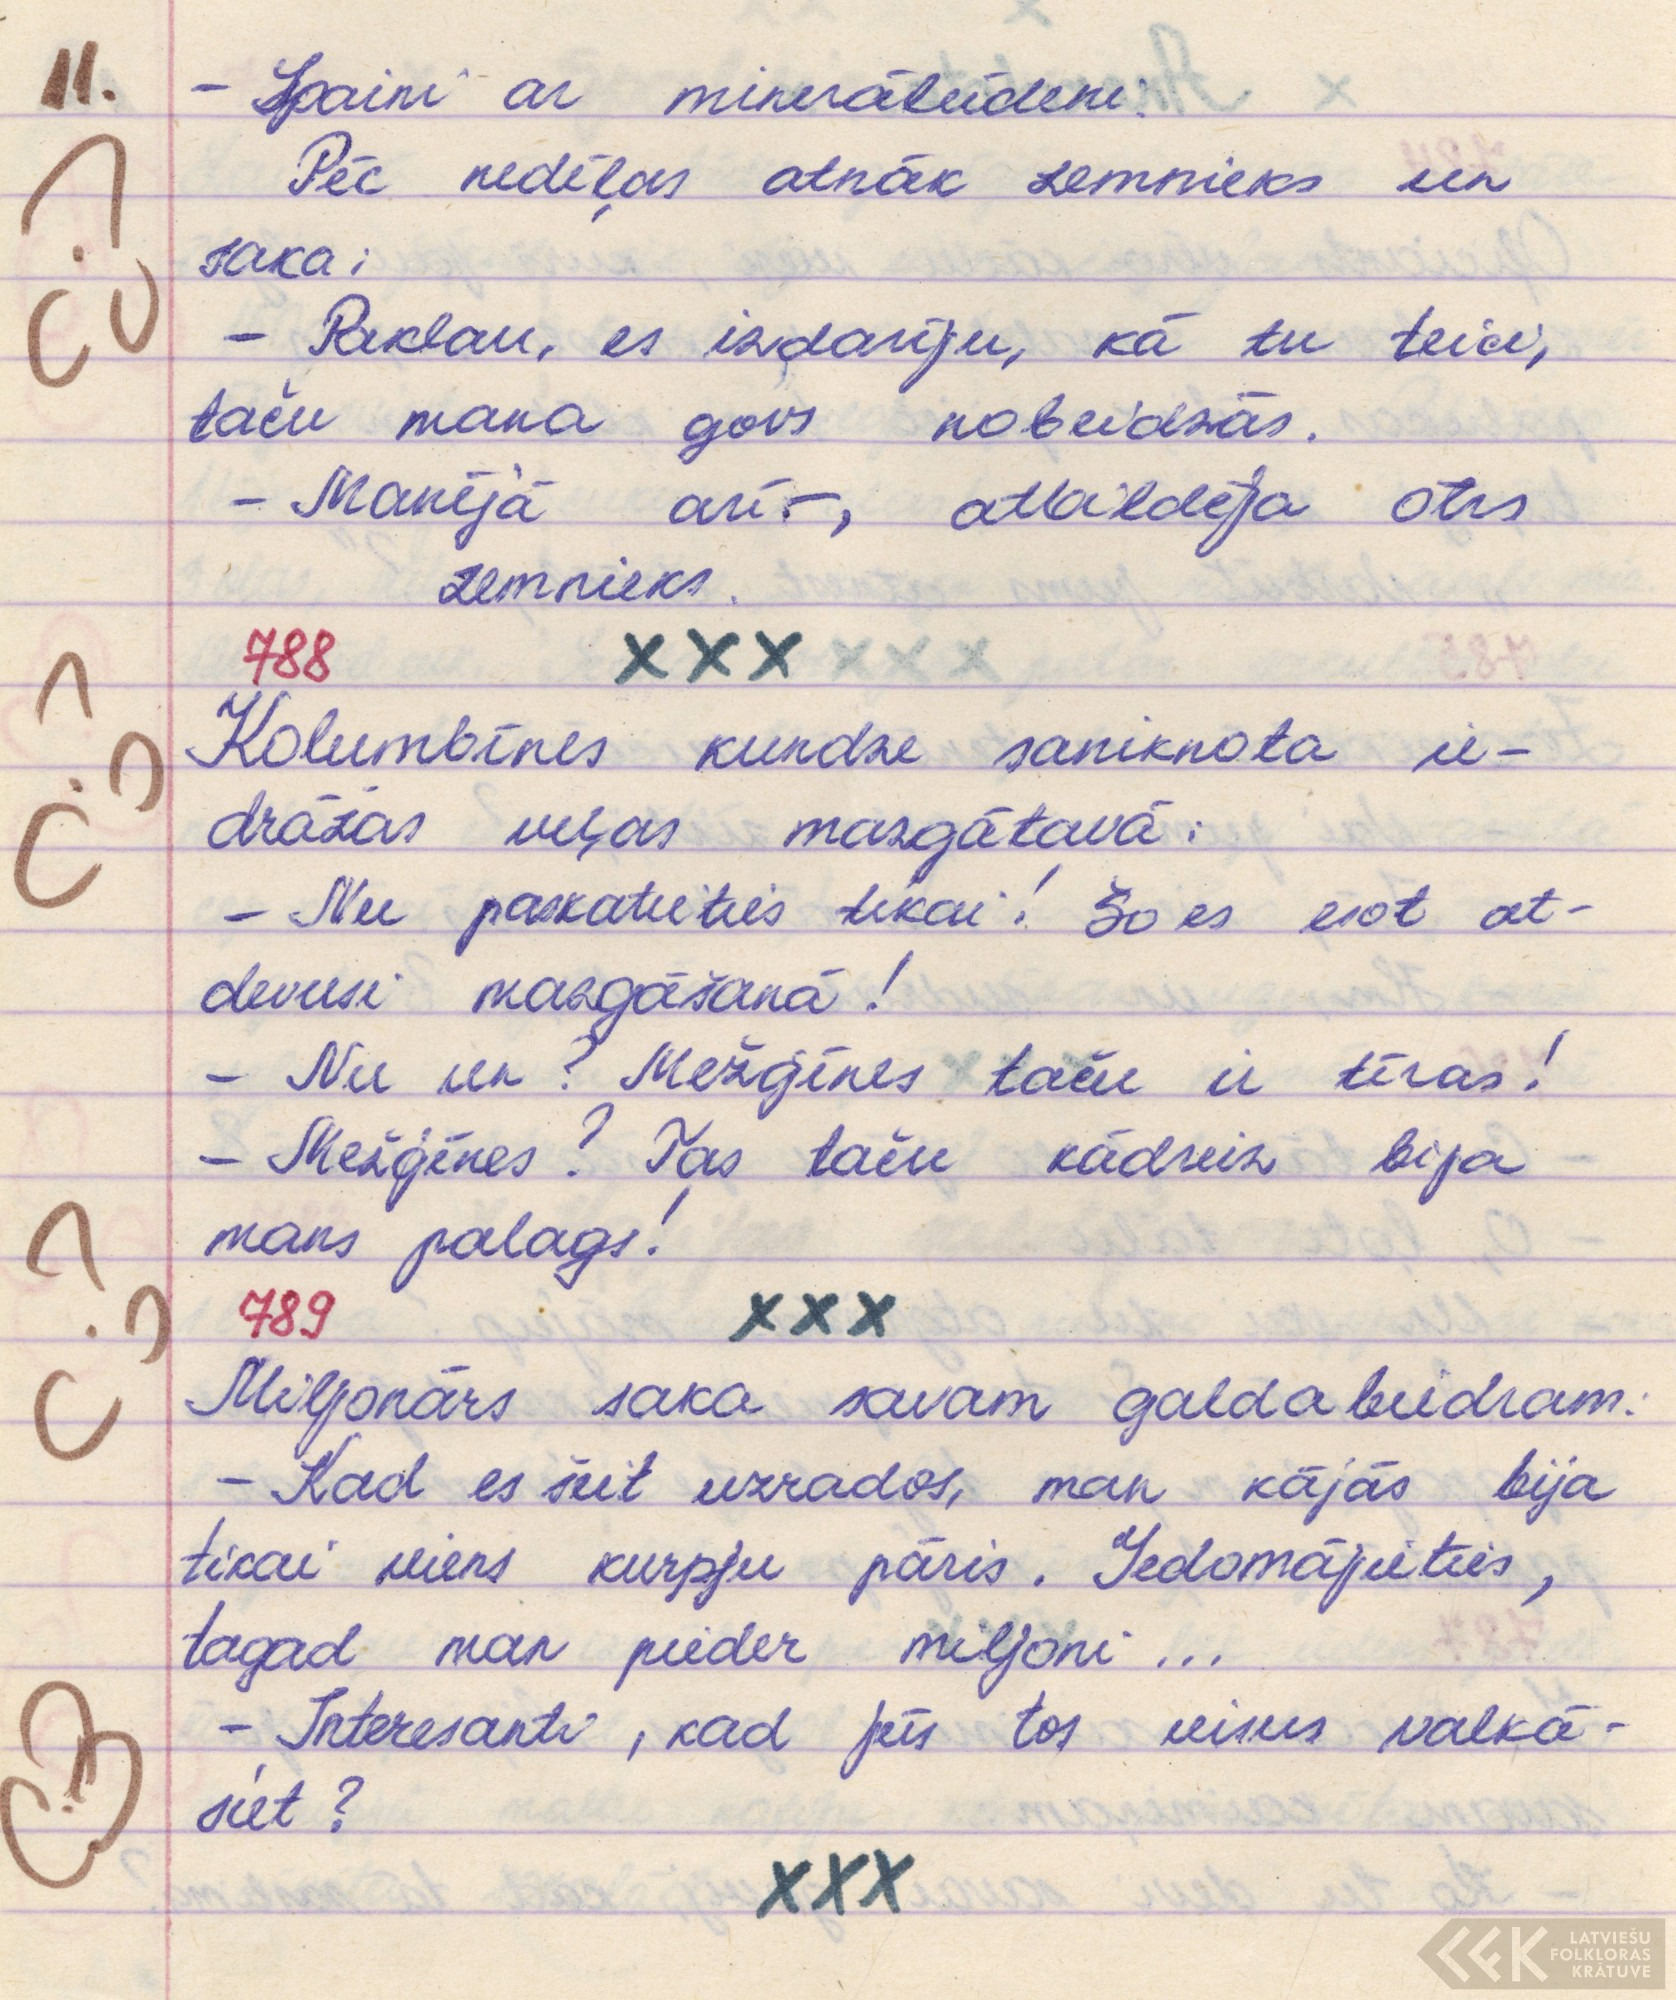 11.
- Spaini ar minerālūdeni.
Pēc nedēļas atnāk zemnieks un
saka:
- Paklau, es izdarīju, kā tu teici,
taču mana govs nobeidzās.
- Manējā arī -, atbildēja otrs
zemnieks.
788 xxx
Kolumbīnes kundze saniknota ie-
drāžas veļas mazgātavā:
- Nu paskatieties tikai! Šo es esot at-
devusi mazgāšanā!
- Nu un? Mežģīnes taču ir tīras!
- Mežģīnes? Tas taču kādreiz bija
mans palags!
789 xxx
Miljonārs saka savam galda biedram:
- Kad es šeit uzrados, man kājās bija
tikai viens kurpju pāris. Iedomājieties,
tagad man pieder miljoni ...
- Interesanti, kad jūs tos visus valkā-
siet?
xxx
LATVIEŠU
FOLKLORAS
KRĀTUVE